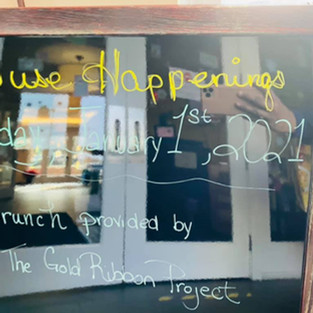 ouse Happenings
day January 1st, 2021
runch provided by
The Gold Ribbon Project